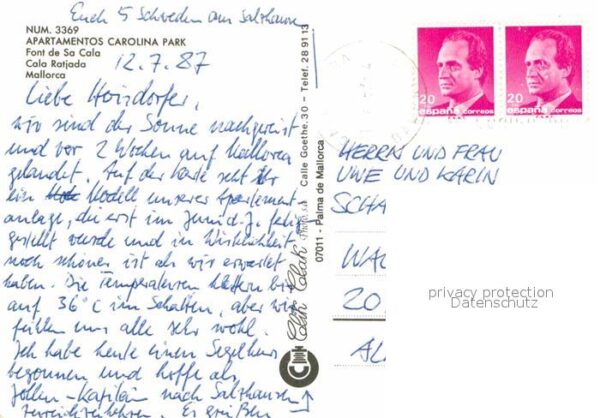 Euch 5 Schweden aus Salzhausen
NUM. 3369
APARTAMENTOS CAROLINA PARK
Font de Sa Cala
Cala Ratjada
Mallorca
12.7.87
Liebe Hoisdorfer,
wir sind der Sonne nachgereist
und vor 2 Wochen auf Mallorca
gelandet. Auf der Karte seht ihr
ein Modell unserer Apartment-
anlage, die erst im Juni d.J. fertig
gestellt wurde und in Wirklichkeit
noch schöner ist als wir erwartet
haben. Die Temperaturen klettern bis
auf 36°C im Schatten, aber wir
fühlen uns alle sehr wohl.
Ich habe heute einen Segelkurs
begonnen und hoffe als
Jollen-Kapitän nach Salzhausen
zurückzukehren. Es grüßen
Calle Goethe, 30 - Telef. 28 91 13
07011 - Palma de Mallorca
20 españa correos
20 españa correos
HERRN UND FRAU
UWE UND KARIN
SCHA
WA
20
AL
privacy protection
Datenschutz